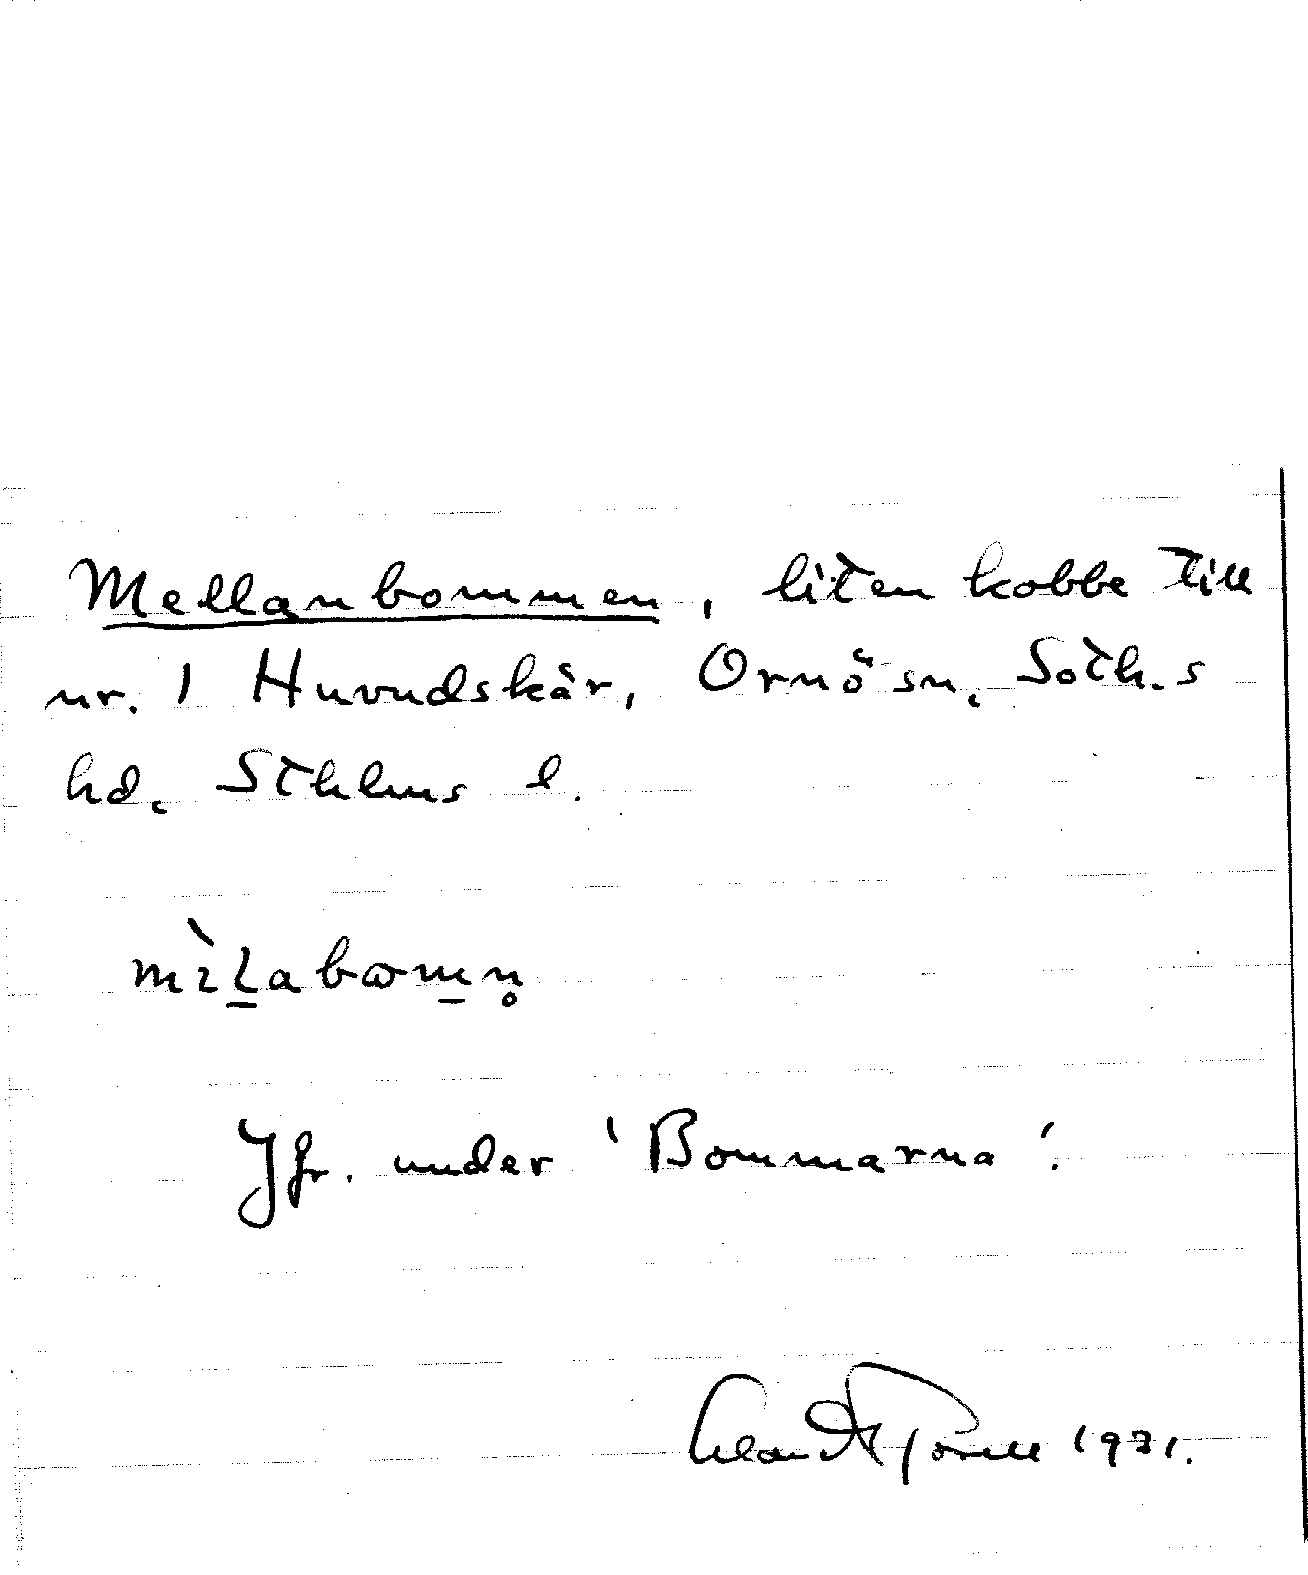 Mellanbommen, liten kobbe till
nr. 1 Huvudskär, Ornö sn, Soth.s
hd, Sthlms l.
mìl̠abωm̠n̥
Jfr. under 'Bommarna'.
1931.